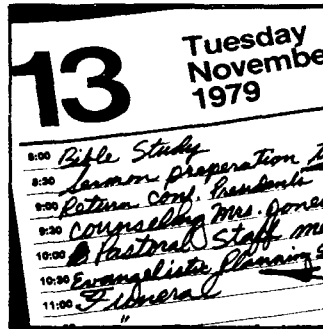 13
Tuesday
Novembe
1979
8:00 Bible Study
8:30 Sermon preperation
9:00 Return Conf. Presidents
9:30 Counseling Mrs. Jone
10:00 Pastoral Staff me
10:30 Evangelistic Planning S
11:00 Funeral
"